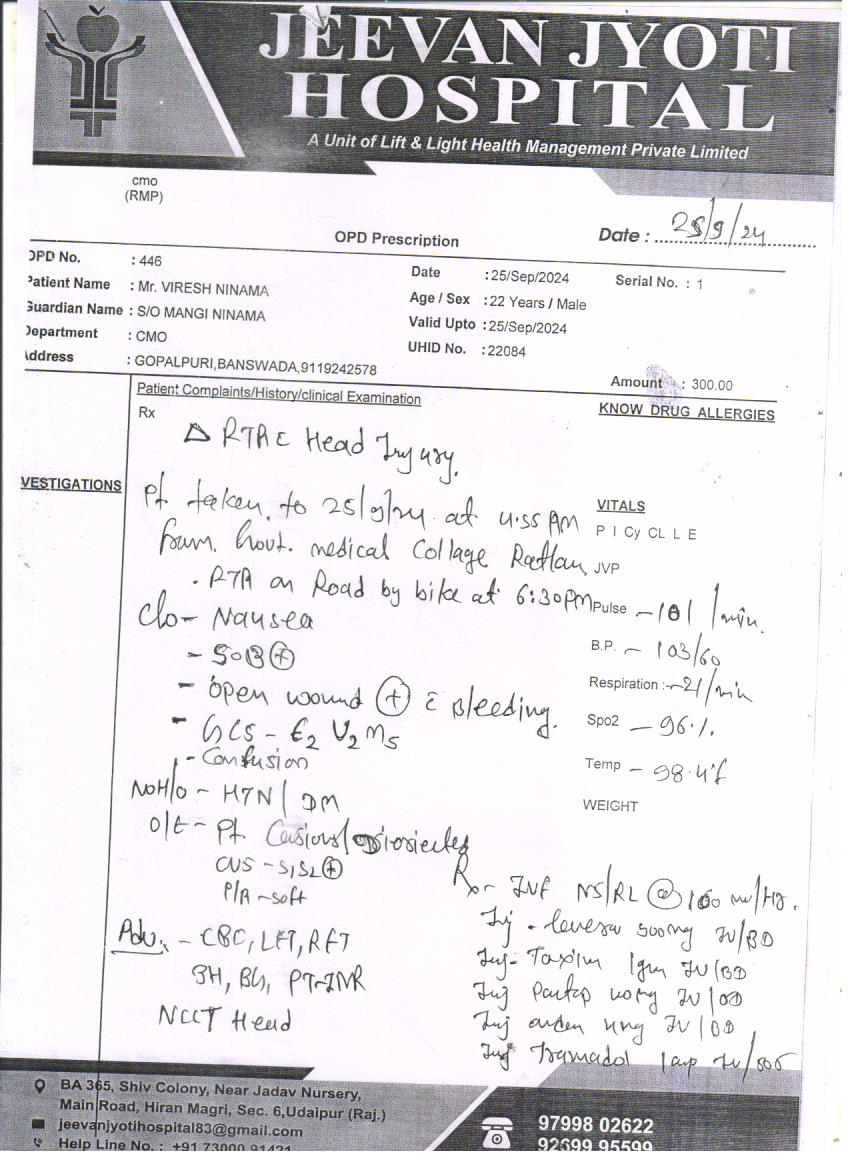 JEEVAN JYOTI
HOSPITAL
A Unit of Lift & Light Health Management Private Limited
cmo
(RMP)
OPD Prescription
Date : 25/9/24
OPD No. : 446
Date : 25/Sep/2024
Serial No. : 1
Patient Name : Mr. VIRESH NINAMA
Age / Sex : 22 Years / Male
Guardian Name : S/O MANGI NINAMA
Valid Upto : 25/Sep/2024
Department : CMO
UHID No. : 22084
Address : GOPALPURI,BANSWADA,9119242578
Amount : 300.00
Patient Complaints/History/clinical Examination
KNOW DRUG ALLERGIES
Rx
Δ RTA c Head Injury.
VESTIGATIONS
Pt taken to 25/9/24 at 4:55 AM
from Govt. medical Collage Ratlam
. RTA on Road by bike at 6:30PM
C/o - Nausea
- SOB (+)
- open wound (+) c Bleeding.
- GCS - E2 V2 M5
- Confusion
NOH/o - HTN / DM
O/E - Pt
CVS - S1S2 (+)
P/A - soft
Adv. - CBC, LFT, RFT
BG, PT-INR
NCCT Head
VITALS
P I Cy CL L E
JVP
Pulse - 101 /min.
B.P. - 103/60
Respiration :- 21/min
Spo2 - 96%.
Temp - 98.4°f
WEIGHT
Rx - IVF NS/RL @ 100 ml/Hr.
Inj - levera 500mg IV/BD
Inj - Taxim 1gm IV/BD
Inj Pantop 40mg IV/OD
Inj 4mg IV/BD
Inj Tramadol 1amp IV/SOS
BA 365, Shiv Colony, Near Jadav Nursery,
Main Road, Hiran Magri, Sec. 6,Udaipur (Raj.)
jeevanjyotihospital83@gmail.com
Help Line No. : +91 73000 91421
97998 02622
92699 95599